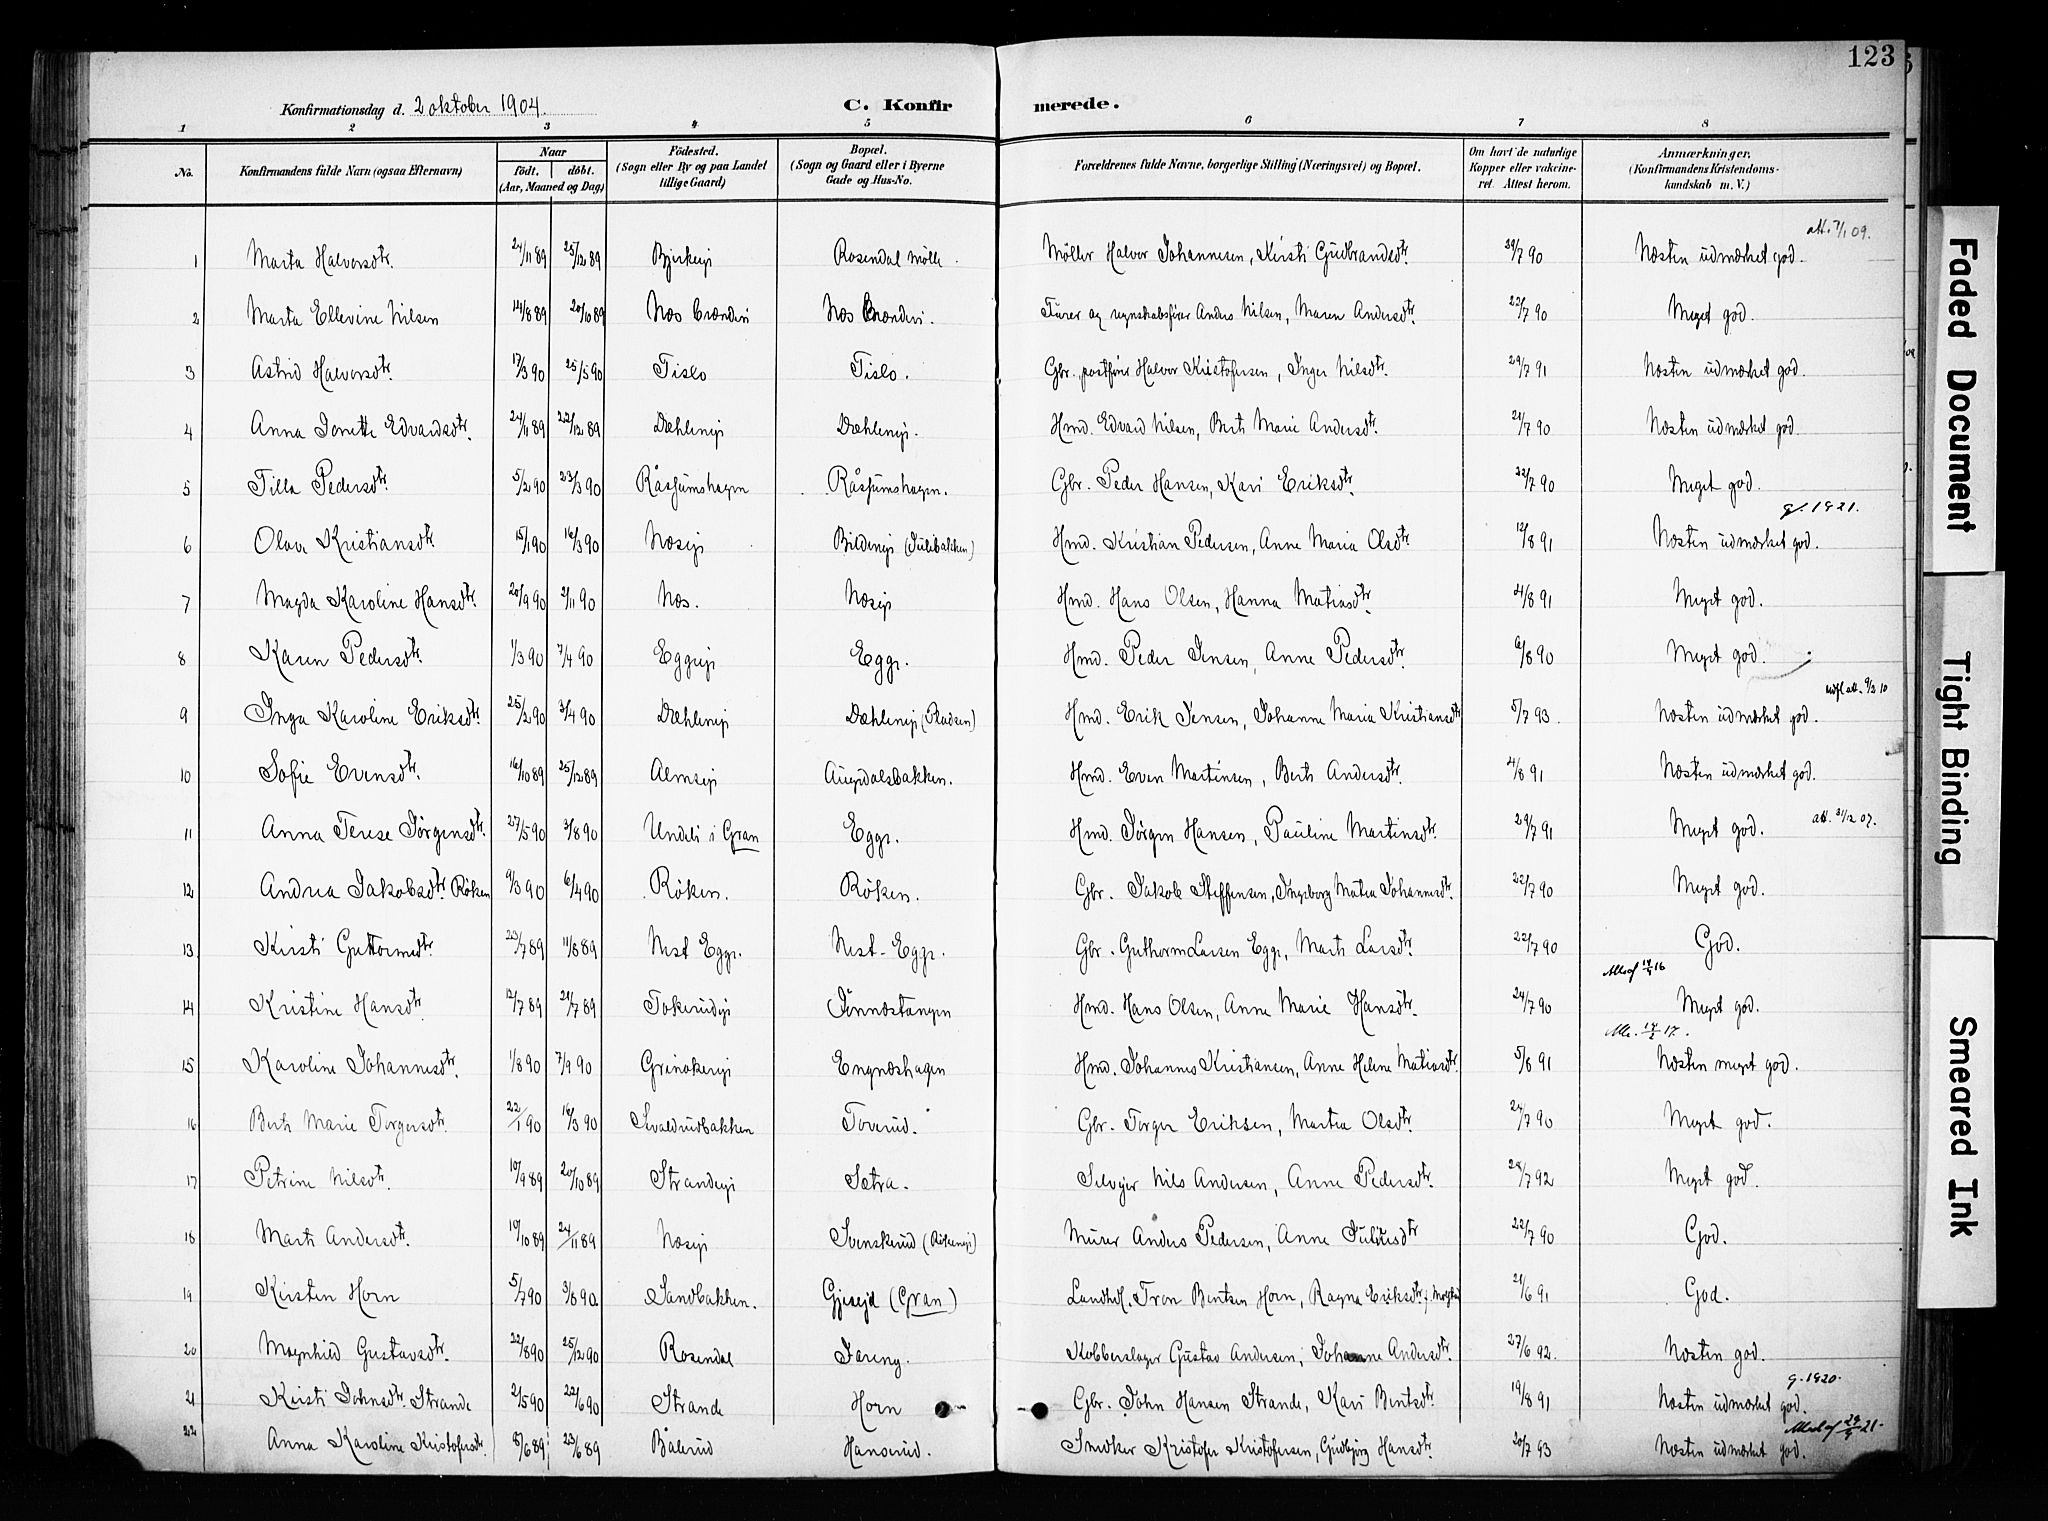 123
Konfirmationsdag d. 2 oktober 1904.
C. Konfirmerede.
1 2 3 4 5 6 7 8
No. Konfirmandens fulde Navn (ogsaa Efternavn) Naar født. døbt. (Aar, Maaned og Dag) Fødested. (Sogn eller By og paa Landet tillige Gaard) Bopæl. (Sogn og Gaard eller i Byerne Gade og Hus-No. Forældrenes fulde Navne, borgerlige Stilling (Næringsvei) og Bopæl. Om havt de naturlige Kopper eller vakcineret. Attest herom. Anmærkninger. (Konfirmandens Kristendomskundskab m. V.)
att. 7/1 09.
1 Marta Halvorsdtr. 24/11 89 25/12 89 Bjerkeji Rosendal mølle. Møller Halvor Johannesen, Kirsti Gudbrandsdtr. 29/7 90 Næsten udmærket god.
2 Marta Ellevine Nilsen 14/8 89 20/10 89 Næs Brænderi Næs Brænderi. Furer og regnskabsfører Anders Nilsen, Maren Andersdtr. 22/7 90 Meget god.
3 Astrid Halvorsdtr. 17/3 90 25/5 90 Tislo Tislo. Gbr. postfører Halvor Kristofersen, Inger Nilsdtr. 29/7 91 Næsten udmærket god.
4 Anna Jonette Edvardsdtr. 24/11 89 22/12 89 Dæhleneji Dæhleneji. Hmd. Edvard Nilsen, Berte Marie Andersdtr. 21/7 90 Næsten udmærket god.
5 Tilla Pedersdtr. 5/2 90 23/3 90 Råssumshagen Råssumshagen. Gbr. Peder Hansen, Kari Eriksdtr. 22/7 90 Meget god.
g. 1921.
6 Olave Kristiansdtr. 15/1 90 16/3 90 Næseji Bildeneji (Julibakken) Hmd. Kristian Pedersen, Anne Maria Olsdtr 12/8 91 Næsten udmærket god.
7 Magda Karoline Hansdtr. 20/9 90 2/11 90 Næs. Næseji Hmd. Hans Olsen, Hanna Matiasdtr. 4/8 91 Meget god.
8 Karen Pedersdtr. 1/3 90 7/4 90 Eggeeji Egge. Hmd. Peder Jensen, Anne Pedersdtr. 6/8 90 Meget god.
udfl att. 9/2 10
9 Inga Karoline Eriksdtr. 25/2 90 3/4 90 Dæhleneji Dæhleneji (Pladsen) Hmd. Erik Jensen, Johanne Maria Kristiansdtr 5/7 93. Næsten udmærket god.
10 Sofie Evensdtr. 16/10 89 25/12 89 Almseji Augedalsbakken. Hmd. Even Martinsen, Berte Andersdtr. 4/8 91 Næsten udmærket god.
11 Anna Terese Jørgensdtr. 27/5 90 3/8 90 Undeli i Gran Egge. Hmd. Jørgen Hansen, Pauline Martinsdtr. 29/7 91 Meget god. att. 31/12 07.
12 Andrea Jakobsdtr. Røken 9/3 90 6/4 90 Røken. Røken. Gbr. Jakob Steffensen, Ingeborg Matea Johannesdtr. 22/7 90 Meget god.
13 Kirsti Guttormsdtr. 23/7 89 11/8 89 Nest Egge. Nest-Egge. Gbr. Guthorm Larsen Egge, Marte Larsdtr. 22/7 90 God.
14 Kristine Hansdtr. 12/7 89 21/7 89 Tokerudeji Finnæstangen Hmd. Hans Olsen, Anne Marie Hansdtr. 24/7 90 Meget god.
15 Karoline Johannesdtr. 1/8 90 7/9 90 Grinakereji Engnæshagen Hmd. Johannes Kristiansen, Anne Helene Matiasdtr. 5/8 91 Næsten meget god.
16 Berte Marie Torgersdtr. 22/1 90 16/3 90 Sivaldrudbakken Toverud. Gbr. Torger Eriksen, Martea Olsdtr. 24/7 90 Meget god.
17 Petrine Nilsdtr. 10/9 89 20/10 89 Strandeeji Sætra. Selvejer Nils Andersen, Anne Pedersdtr. 28/7 92 Meget god.
18 Marte Andersdtr. 10/10 89 24/11 89 Næseji Svenskerud (Røkeneji) Murer Anders Pedersen, Anne Juliusdtr 22/7 90 God.
19 Kirsten Horn 5/7 90 3/8 90. Sandbakken. Gjesejd (Gran) Landhdl. Tron Bentsen Horn, Ragna Eriksdtr. 21/6 91 God.
20 Magnhild Gustavsdtr. 22/8 90 25/12 90 Rosendal Jareng. Kobberslager Gustav Andersen, Johanne Andersdtr. 27/6 92. Næsten god.
g. 1920.
21 Kirsti Johnsdtr. Strande 2/5 90 22/6 90 Strande Horn Gbr. John Hansen Strande, Kari Bentsdtr 19/8 91 Næsten udmærket god.
22 Anna Karoline Kristofersdtr. 8/6 89 23/6 89 Bålerud Hanserud. Snedker Kristofer Kristofersen, Gudbjørg Hansdtr. 20/7 93 Næsten udmærket god.
Faded Document
Tight Binding
Smeared Ink